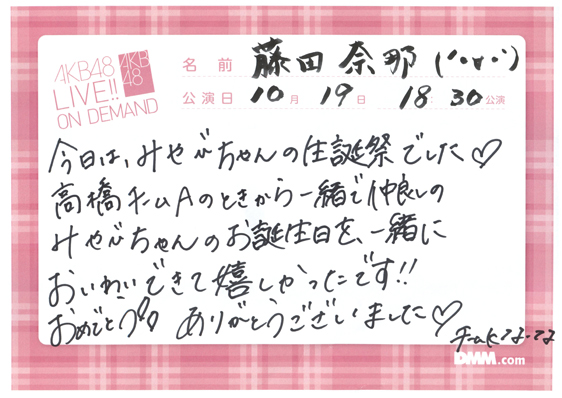 AKB48
LIVE!!
ON DEMAND
AKB
48
名前 藤田奈那 (*•∀•*)
公演日 10月19日 18:30公演
今日は、みやびちゃんの生誕祭でした♡
高橋チームAのときから一緒で仲良しの
みやびちゃんのお誕生日を、一緒に
おいわいできて嬉しかったです!!
おめでとう!! ありがとうございましたー♡
チームK なーな
DMM.com